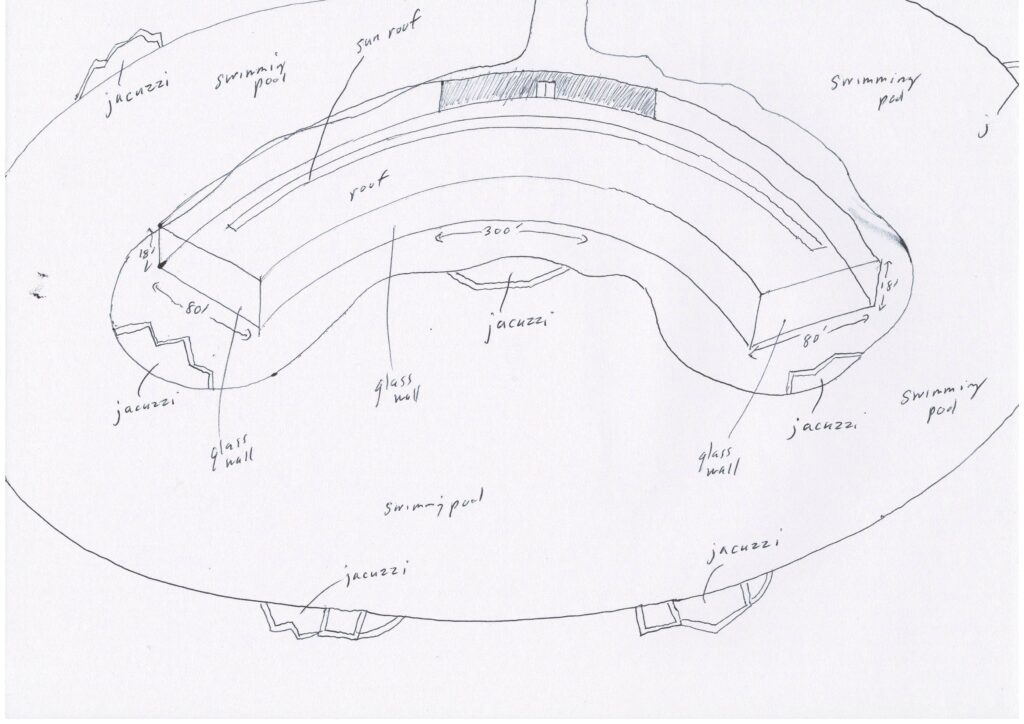 sun roof
jacuzzi
swimming
pool
swimming
pool
j
roof
300'
18'
18'
80'
80'
jacuzzi
glass
wall
jacuzzi
jacuzzi
swimming
pool
glass
wall
glass
wall
swimming pool
jacuzzi
jacuzzi